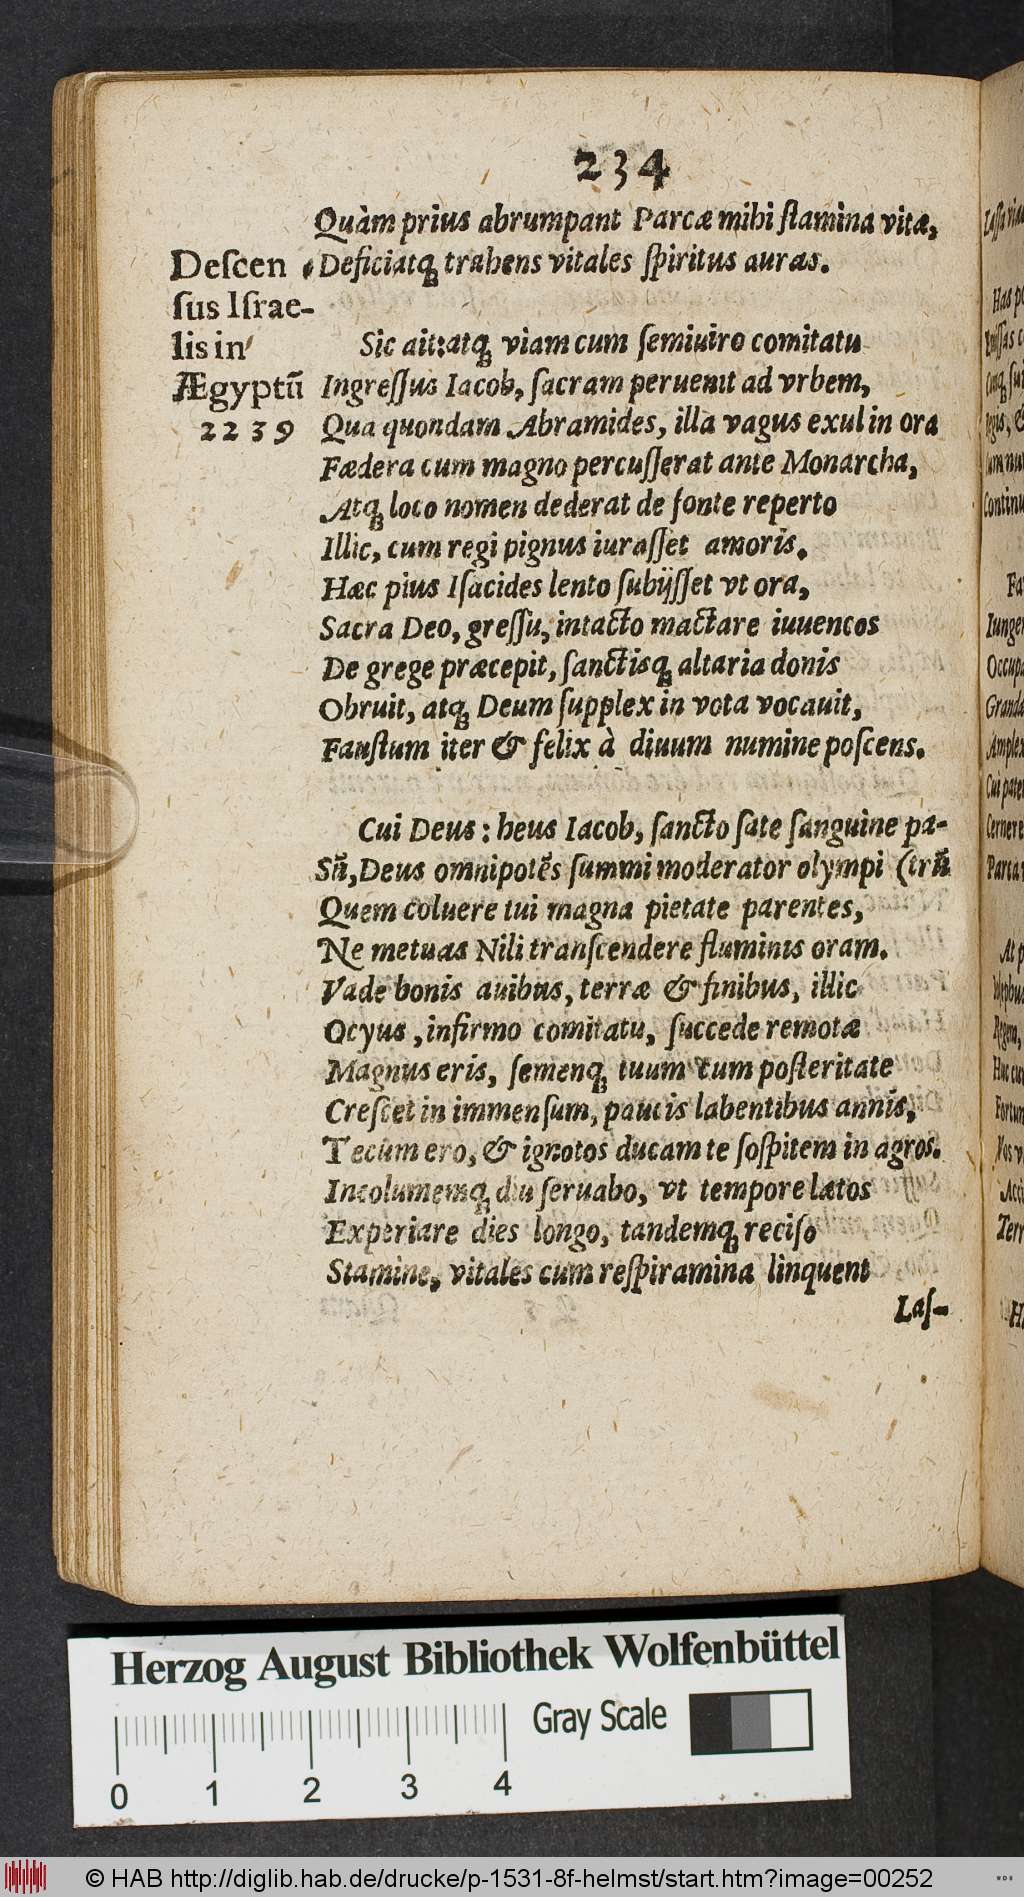 234
Quàm prius abrumpant Parcæ mihi ſtamina vitæ,
Deficiatqꝫ trahens vitales ſpiritus auras.
Deſcen
ſus Iſrae-
lis in
Ægyptũ
2239
Sic ait: atqꝫ viam cum ſemiuiro comitatu
Ingreſſus Iacob, ſacram peruenit ad vrbem,
Qua quondam Abramides, illa vagus exul in ora
Fædera cum magno percuſſerat ante Monarcha,
Atqꝫ loco nomen dederat de fonte reperto
Illic, cum regi pignus iuraſſet amoris.
Hæc pius Iſacides lento ſubijſſet vt ora,
Sacra Deo, greſſu, intacto mactare iuuencos
De grege præcepit, ſanctisqꝫ altaria donis
Obruit, atqꝫ Deum ſupplex in vota vocauit,
Fauſtum iter & felix à diuum numine poſcens.
Cui Deus: heus Iacob, ſancto ſate ſanguine pa-
Sũ, Deus omnipotẽs ſummi moderator olympi (trũ
Quem coluere tui magna pietate parentes,
Ne metuas Nili tranſcendere fluminis oram.
Vade bonis auibus, terræ & finibus, illic
Ocyus, infirmo comitatu, ſuccede remotæ
Magnus eris, ſemenqꝫ tuum cum poſteritate
Creſcet in immenſum, paucis labentibus annis,
Tecum ero, & ignotos ducam te ſoſpitem in agros.
Incolumemqꝫ diu ſeruabo, vt tempore lætos
Experiare dies longo, tandemqꝫ reciſo
Stamine, vitales cum reſpiramina linquent
Laſ-
Herzog August Bibliothek Wolfenbüttel
Gray Scale
0 1 2 3 4
© HAB http://diglib.hab.de/drucke/p-1531-8f-helmst/start.htm?image=00252